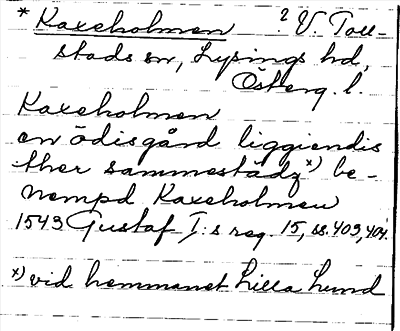 * Kaxeholmen ? V. Toll-
stads sn, Lysings hd,
Österg. l.
Kaxeholmen
en ödisgård liggiendis
ther sammestädz x) be-
nempd Kaxeholmen
1543 Gustaf I:s reg. 15, ss. 403, 404.
x) vid hemmanet Lilla Lund